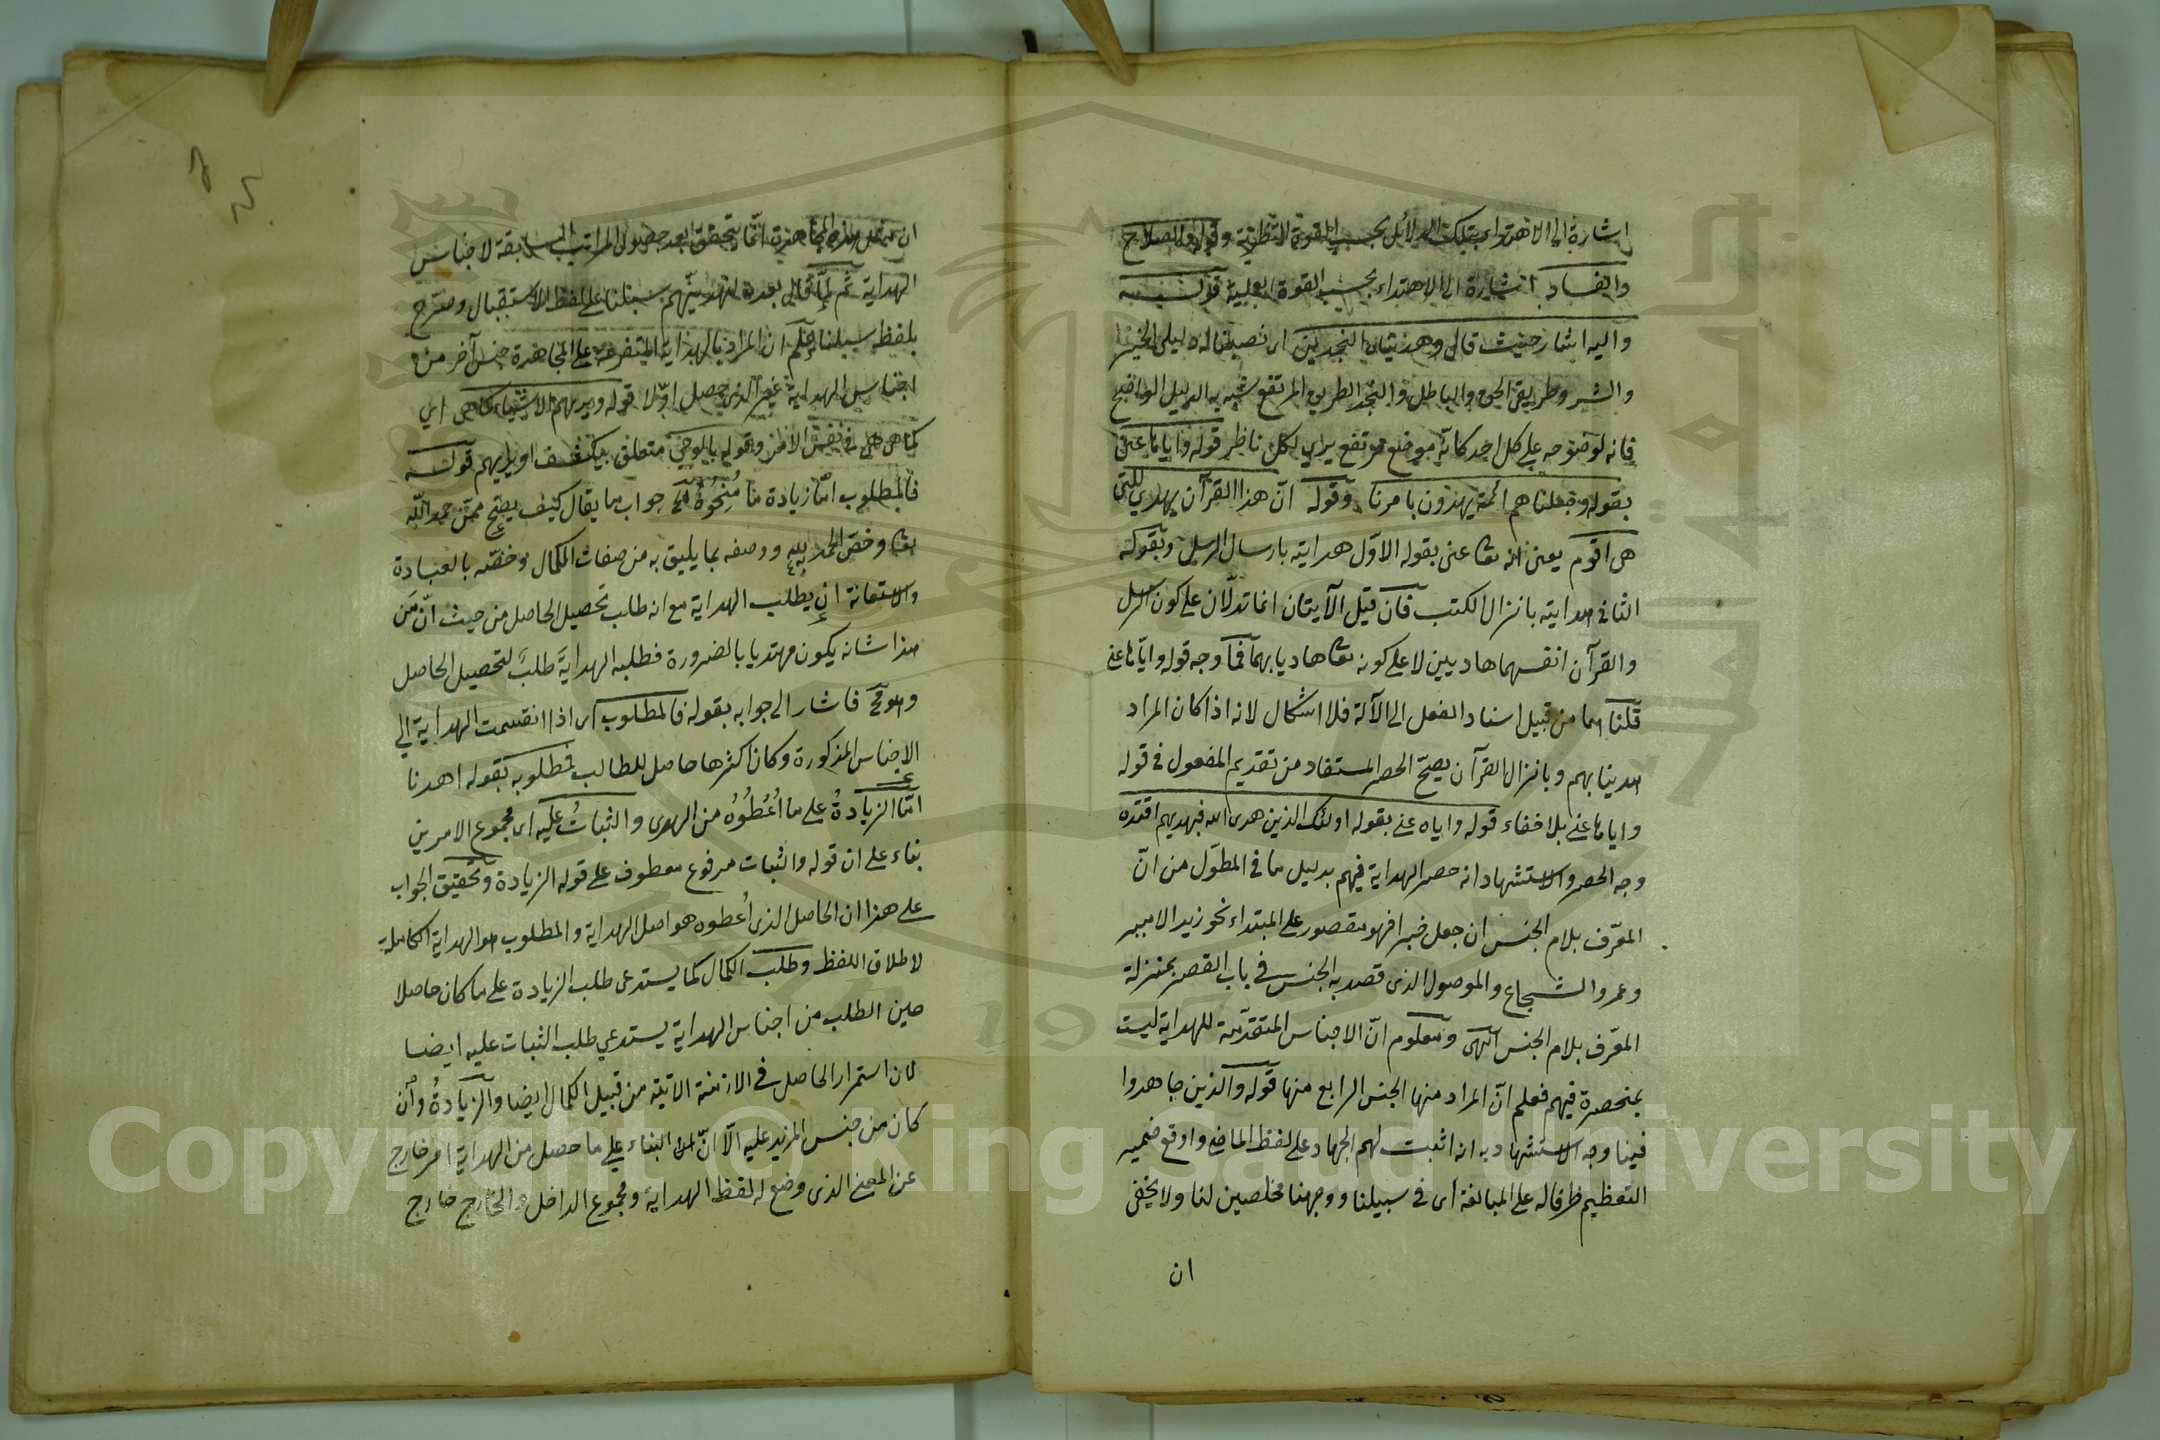 اشارة الى الاهتداء بتلك الدلائل بحسب القوة النظرية وقوله والصلاح
والفساد اشارة الى الاهتداء بحسب القوة العملية قوله
واليه اشار حيث قال وهديناه النجدين اى نصبنا له دليلى الخير
والشر وطريقى الحق والباطل والنجد الطريق المرتفع شبه به الدليل الواضح
فانه لوضوحه على كل احد كانه موضع مرتفع يراى لكل ناظر قوله واياها عنى
بقوله وجعلناهم ائمة يهدون بامرنا وقوله ان هذا القرآن يهدي للتى
هى اقوم يعنى انه تعا عنى بقوله الاوّل هدايته بارسال الرسل وبقوله
الثانى هدايته بانزال الكتب فان قيل الآيتان انما تدلّان على كون الرسل
والقرآن انفسهما هاديين لا على كونه تعا هاديا بهما فما وجه قوله واياها عنى
قلنا هما من قبيل اسناد الفعل الى الآلة فلا اشكال لانه اذا كان المراد
هدينا بهم وبانزال القرآن يصحّ الحصر المستفاد من تقديم المفعول فى قوله
واياها عنى بلا خفاء قوله واياه عنى بقوله اولئك الذين هدى الله فبهديهم اقتده
وجه الحصر والاستشهاد انه حصر الهداية فيهم بدليل ما فى المطوّل من انّ
المعرّف بلام الجنس ان جعل خبرا فهو مقصور على المبتداء نحو زيد الامير
وعمرو الشجاع والموصول الذى قصد به الجنس فى باب القصر بمنزلة
المعرّف بلام الجنس انتهى ومعلوم انّ الاجناس المتقدّمة للهداية ليست
بمنحصرة فيهم فعلم انّ المراد منها الجنس الرابع منها قوله والذين جاهدوا
فينا وجه الاستشهاد به انه اثبت لهم الجهاد على لفظ الماضى واوقع ضمير
التعظيم ظرفا له على المبالغة اى فى سبيلنا ووجهنا مخلصين لنا ولا يخفى
ان
ان مثل هذه المجاهدة انّما يتحقق بعد حصول المراتب السابقة لاجناس
الهداية ثم لمّا قال بعده لنهدينّهم سبلنا على لفظ الاستقبال وصرّح
بلفظ سبلنا علم ان المراد بالهداية المتفرعة على المجاهدة جنس آخر من
اجناس الهداية غير الذى حصل اوّلا قوله ويريهم الاشياء كما هى اى
كما هى هى فى نفس الامر وقوله بالوحى متعلق بيكشف او يريهم قوله
فالمطلوب امّا زيادة ما مُنِحُوهُ الخ جواب ما يقال كيف يصحّ ممّن حمد اللّه
تعا وخصّ الحمد لله ووصفه بما يليق به من صفات الكمال وخصّه بالعبادة
والاستعانة ان يطلب الهداية مع انه طلب تحصيل الحاصل من حيث انّ مَن
هذا شانه يكون مهتديا بالضرورة فطلبه الهدايةَ طلبٌ لتحصيل الحاصل
وهو مح فاشار الى جوابه بقوله فالمطلوب اى اذا انقسمت الهداية الى
الاجناس المذكورة وكان اكثرها حاصل للطالب فمطلوبه بقوله اهدنا
امّا الزيادةُ على ما اُعْطُوُه من الهدى والثباتُ عليه اى مجموع الامرين
بناء على ان قوله والثبات مرفوع معطوف على قوله الزيادة وتحقيق الجواب
على هذا ان الحاصل الذى اُعطوه هو اصل الهداية والمطلوب هو الهداية الكاملة
لاطلاق اللفظ وطلب الكمال كما يستدعى طلب الزيادة على ما كان حاصلا
حين الطلب من اجناس الهداية يستدعي طلب الثبات عليه ايضا
لان استمرار الحاصل فى الازمنة الاتية من قبيل الكمال ايضا والزيادةُ واُن
كان من جنس المزيد عليه الّا انّ البناء على ما حصل من الهداية امر خارج
عن المعنى الذى وضع له لفظ الهداية ومجموع الداخل والخارج خارج
Copyright © King Saud University